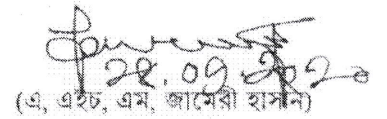 ২৪.০৭.২০২০
(এ, এইচ, এম, জামেরী হাসান)